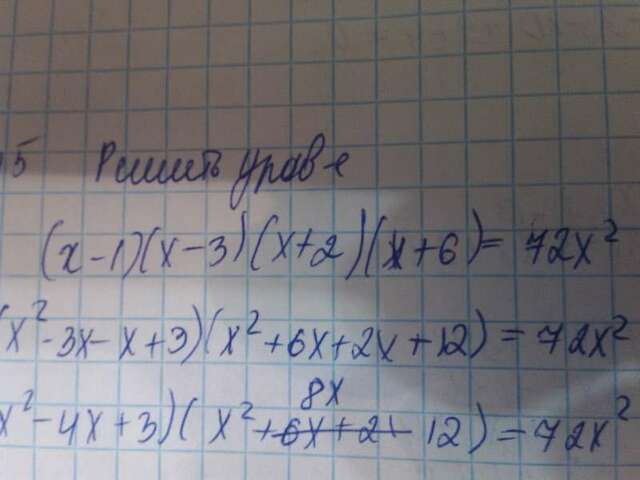 15 Решить уравн
(x-1)(x-3)(x+2)(x+6)=72x²
(x²-3x-x+3)(x²+6x+2x+12)=72x²
8x
x²-4x+3)(x²+6x+2+12)=72x²